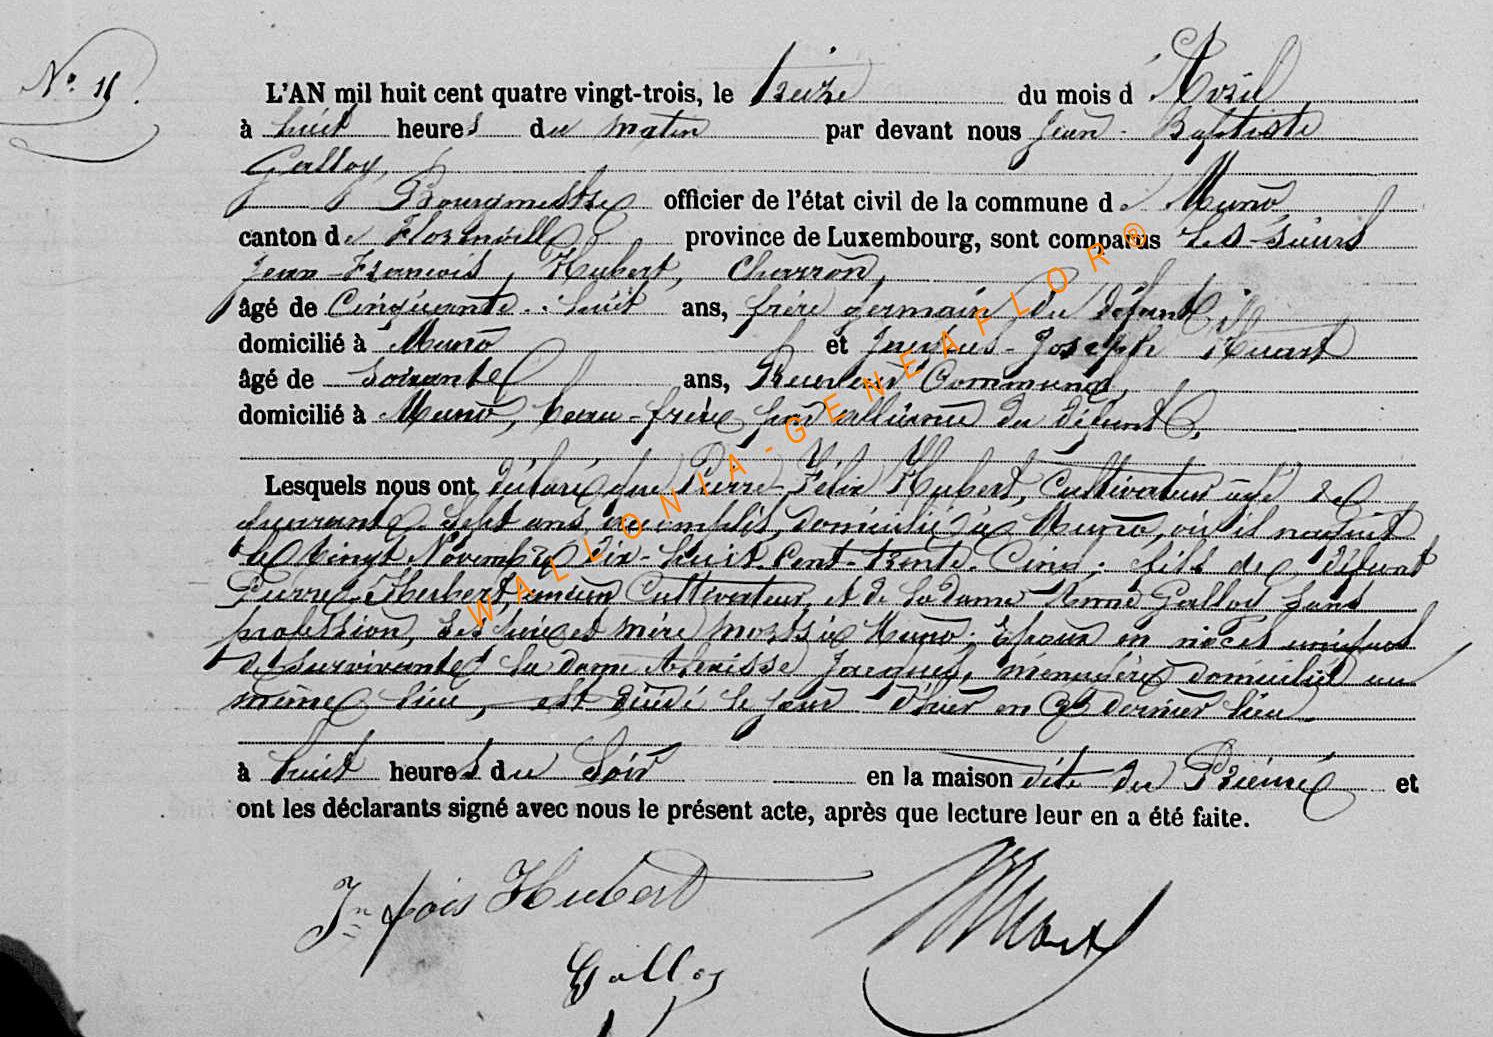 N° 11.
L'AN mil huit cent quatre vingt-trois, le treize du mois d'Avril
à huit heures du matin par devant nous Jean-Baptiste
Galloy,
Bourgmestre officier de l'état civil de la commune de Muno,
canton de Florenville province de Luxembourg, sont comparus les sieurs
Jean-François, Hubert, Charron,
âgé de Cinquante-huit ans, frère germain du défunt,
domicilié à Muno et Jacques-Joseph Huart
âgé de Soixante ans, Receveur Communal,
domicilié à Muno, beau-frère par alliance du défunt,
Lesquels nous ont déclaré que Pierre-Félix Hubert, Cultivateur âgé de
quarante-sept ans accomplis, domicilié à Muno, où il naquit
le vingt Novembre dix-huit-cent-trente-Cinq; fils de défunt
Pierre Hubert, ancien Cultivateur, et de la dame Galloy sans
profession, ses père et mère morts à Muno; Epoux en noces uniques
et survivante la dame Jacques, ménagère domiciliée au
même lieu, est décédé le jour d'hier en ce dernier lieu
à huit heures du Soir en la maison dite du et
ont les déclarants signé avec nous le présent acte, après que lecture leur en a été faite.
Jn fois Hubert
Huart
Galloy
WALLONIA-GENEAFLOR®